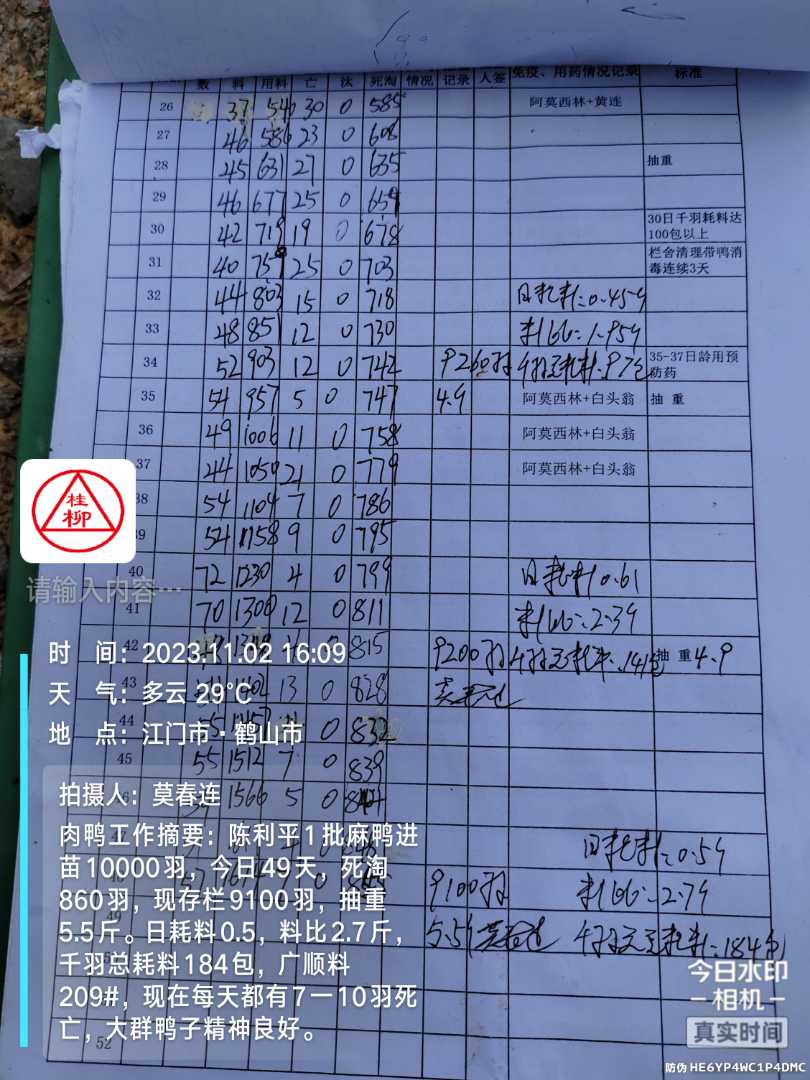 数 料 用料 亡 汰 死淘 情况 记录 人签 免疫、用药情况记录 标准
26 37 546 30 0 585 阿莫西林+黄连
27 46 586 23 0 608
28 45 631 27 0 635 抽重
29 46 677 25 0 659
30 42 719 19 0 678 30日千羽耗料达
100包以上
31 40 759 25 0 703 栏舍清理带鸭消
毒连续3天
32 44 803 15 0 718 日耗料:0.45斤
33 48 851 12 0 730 料比:1.95斤
34 52 903 12 0 742 9260羽 千羽总耗料:97包 35-37日龄用预
防药
35 54 957 5 0 747 4.9 阿莫西林+白头翁 抽 重
36 49 1006 11 0 758 阿莫西林+白头翁
37 44 1050 21 0 779 阿莫西林+白头翁
38 54 1104 7 0 786
39 54 1158 9 0 795
40 72 1230 4 0 799 日耗料0.61
41 70 1300 12 0 811 料比:2.39
42 0 815 9200羽 千羽总耗料:141包 抽 重4.9
43 13 0 828 莫春连
44 0 832
45 55 1512 7 0 839
1566 5 0
47 日耗料:0.5斤
9100羽 料比:2.7斤
5.5斤 莫春连 千羽总耗料:184包
52
桂
柳
请输入内容…
时 间: 2023.11.02 16:09
天 气: 多云 29°C
地 点: 江门市·鹤山市
拍摄人: 莫春连
肉鸭工作摘要: 陈利平1批麻鸭进
苗10000羽，今日49天，死淘
860羽，现存栏9100羽，抽重
5.5斤。日耗料0.5，料比2.7斤，
千羽总耗料184包，广顺料
209#，现在每天都有7一10羽死
亡，大群鸭子精神良好。
今日水印
相机
真实时间
防伪 HE6YP4WC1P4DMC